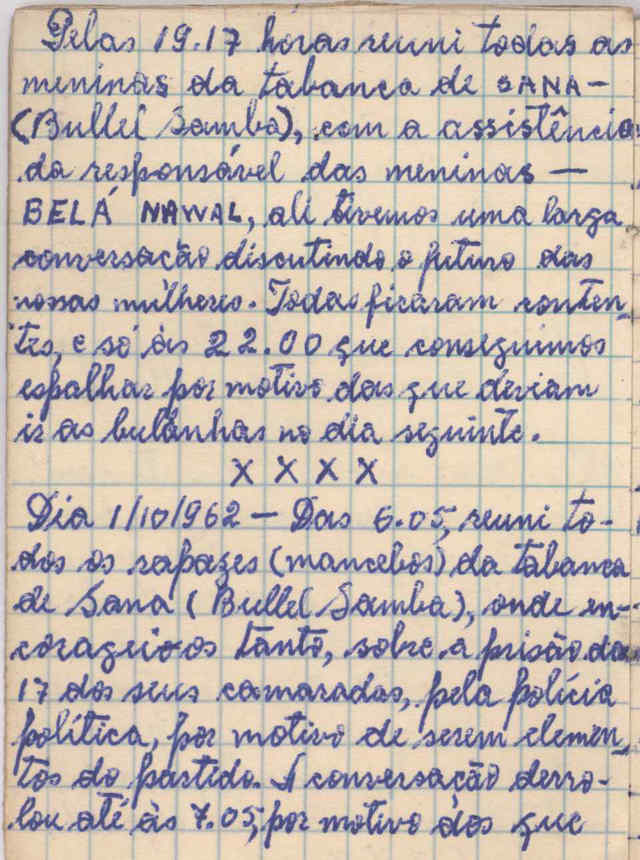 Pelas 19.17 horas reuni todas as
meninas da tabanca de SANA-
(Bullel Samba), com a assistência
da responsável das meninas —
BELÁ NAWAL, ali tivemos uma larga
conversação discutindo o futuro das
nossas mulheres. Todas ficaram conten-
tes, e só às 22.00 que conseguimos
espalhar por motivo das que deviam
ir as bulanhas no dia seguinte.
X X X X
Dia 1/10/962 — Das 6.05, reuni to-
dos os rapazes (mancebos) da tabanca
de Sana (Bullel Samba), onde en-
corageios tanto, sobre a prisão dos
17 dos seus camaradas, pela polícia
política, por motivo de serem elemen-
tos do partido. A conversação derro-
lou até às 7.05, por motivo dos que